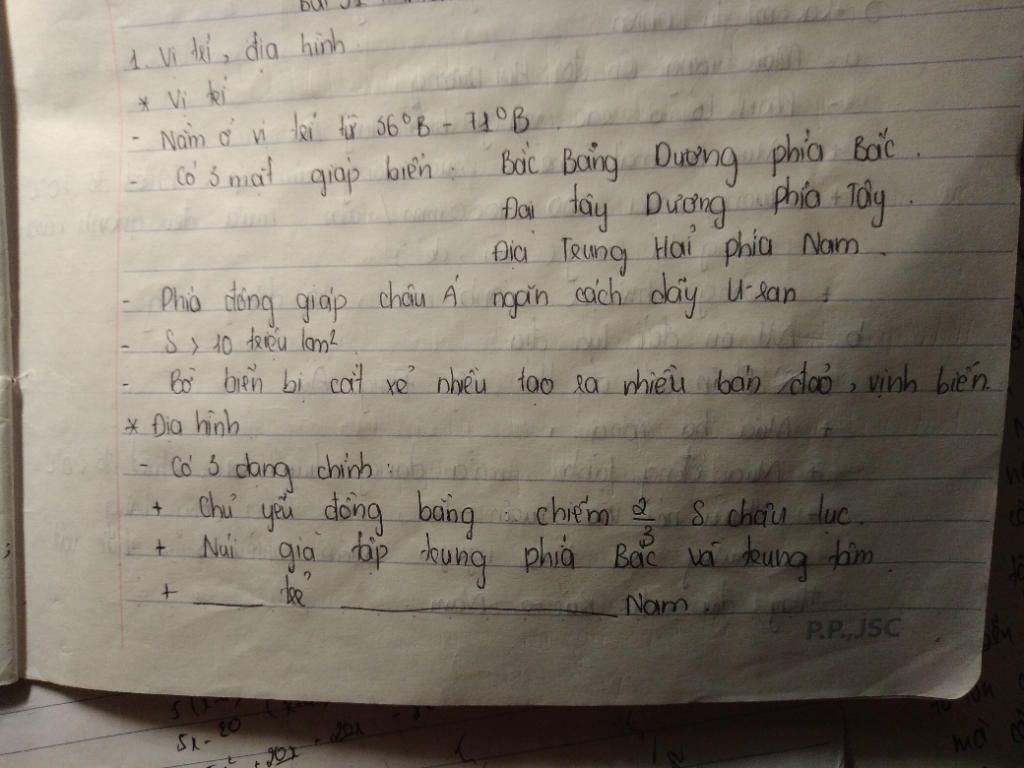 Bài 51
1. Vị trí, địa hình
* Vị trí
- Nằm ở vị trí từ 36°B - 71°B
- Có 3 mặt giáp biển: Bắc Băng Dương phía Bắc.
Đại tây Dương phía Tây.
Địa Trung Hải phía Nam.
- Phía đông giáp châu Á ngăn cách dãy U-ran
- S > 10 triệu km²
- Bờ biển bị cắt xẻ nhiều tạo ra nhiều bán đảo, vịnh biển
* Địa hình
- Có 3 dạng chính:
+ Chủ yếu đồng bằng: chiếm 2/3 S châu lục.
+ Núi già tập trung phía Bắc và trung tâm
+ ____ trẻ ____________ Nam.
P.P.,JSC
5x - 20